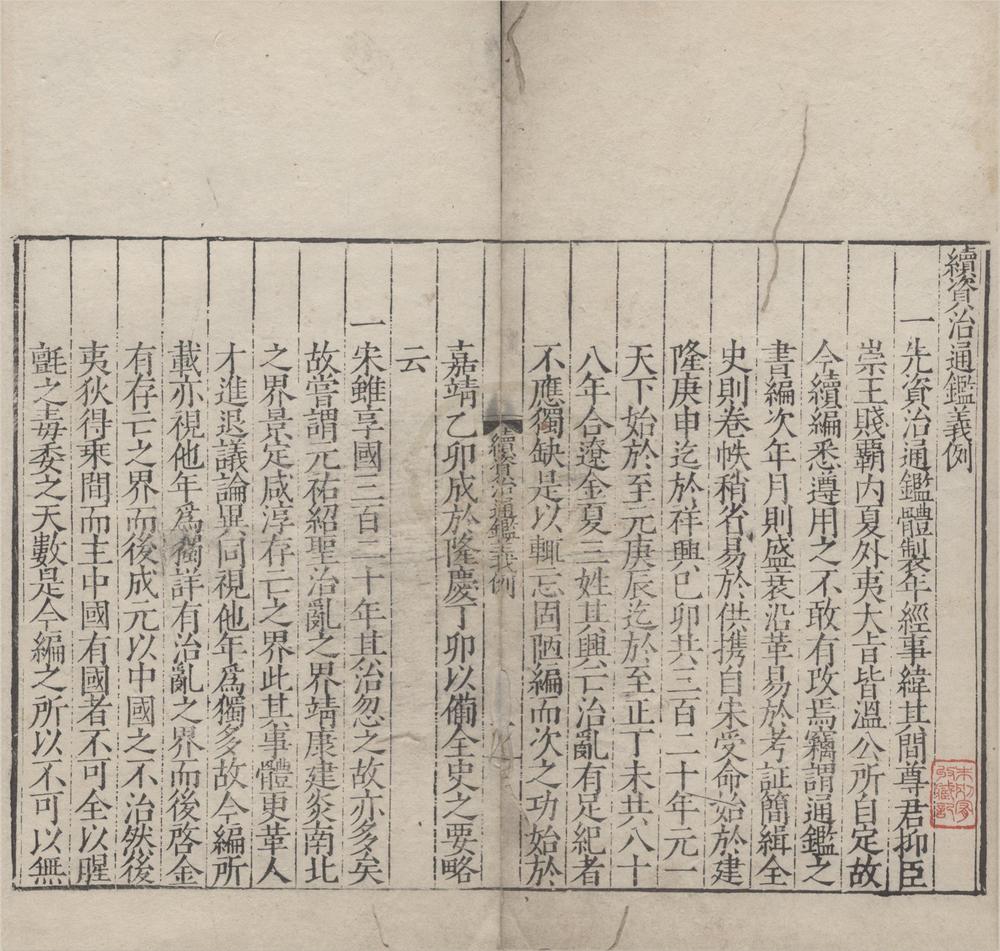 續資治通鑑義例
一先資治通鑑體製年經事緯其間尊君抑臣
崇王賤覇内夏外夷大旨皆溫公所自定故
今續編悉遵用之不敢有攷焉竊謂通鑑之
書編次年月則盛衰沿革易於考証簡緝全
史則卷帙稍省易於供携自宋受命始於建
隆庚申迄於祥興巳卯共三百二十年元一
天下始於至元庚辰迄於至正丁未共八十
八年合遼金夏三姓其興亡治亂有足紀者
不應獨缺是以輒忘固陋編而次之功始於
續資治通鑑義例
嘉靖乙卯成於隆慶丁卯以備全史之要略
云
一宋雖享國三百二十年其治忽之故亦多矣
故嘗謂元祐紹聖治亂之界靖康建炎南北
之界景定咸淳存亡之界此其事體更革人
才進退議論異同視他年爲獨多故今編所
載亦視他年爲獨詳有治亂之界而後啓金
有存亡之界而後成元以中國之不治然後
夷狄得乗間而主中國有國者不可全以腥
氈之毒委之天數是今編之所以不可以無